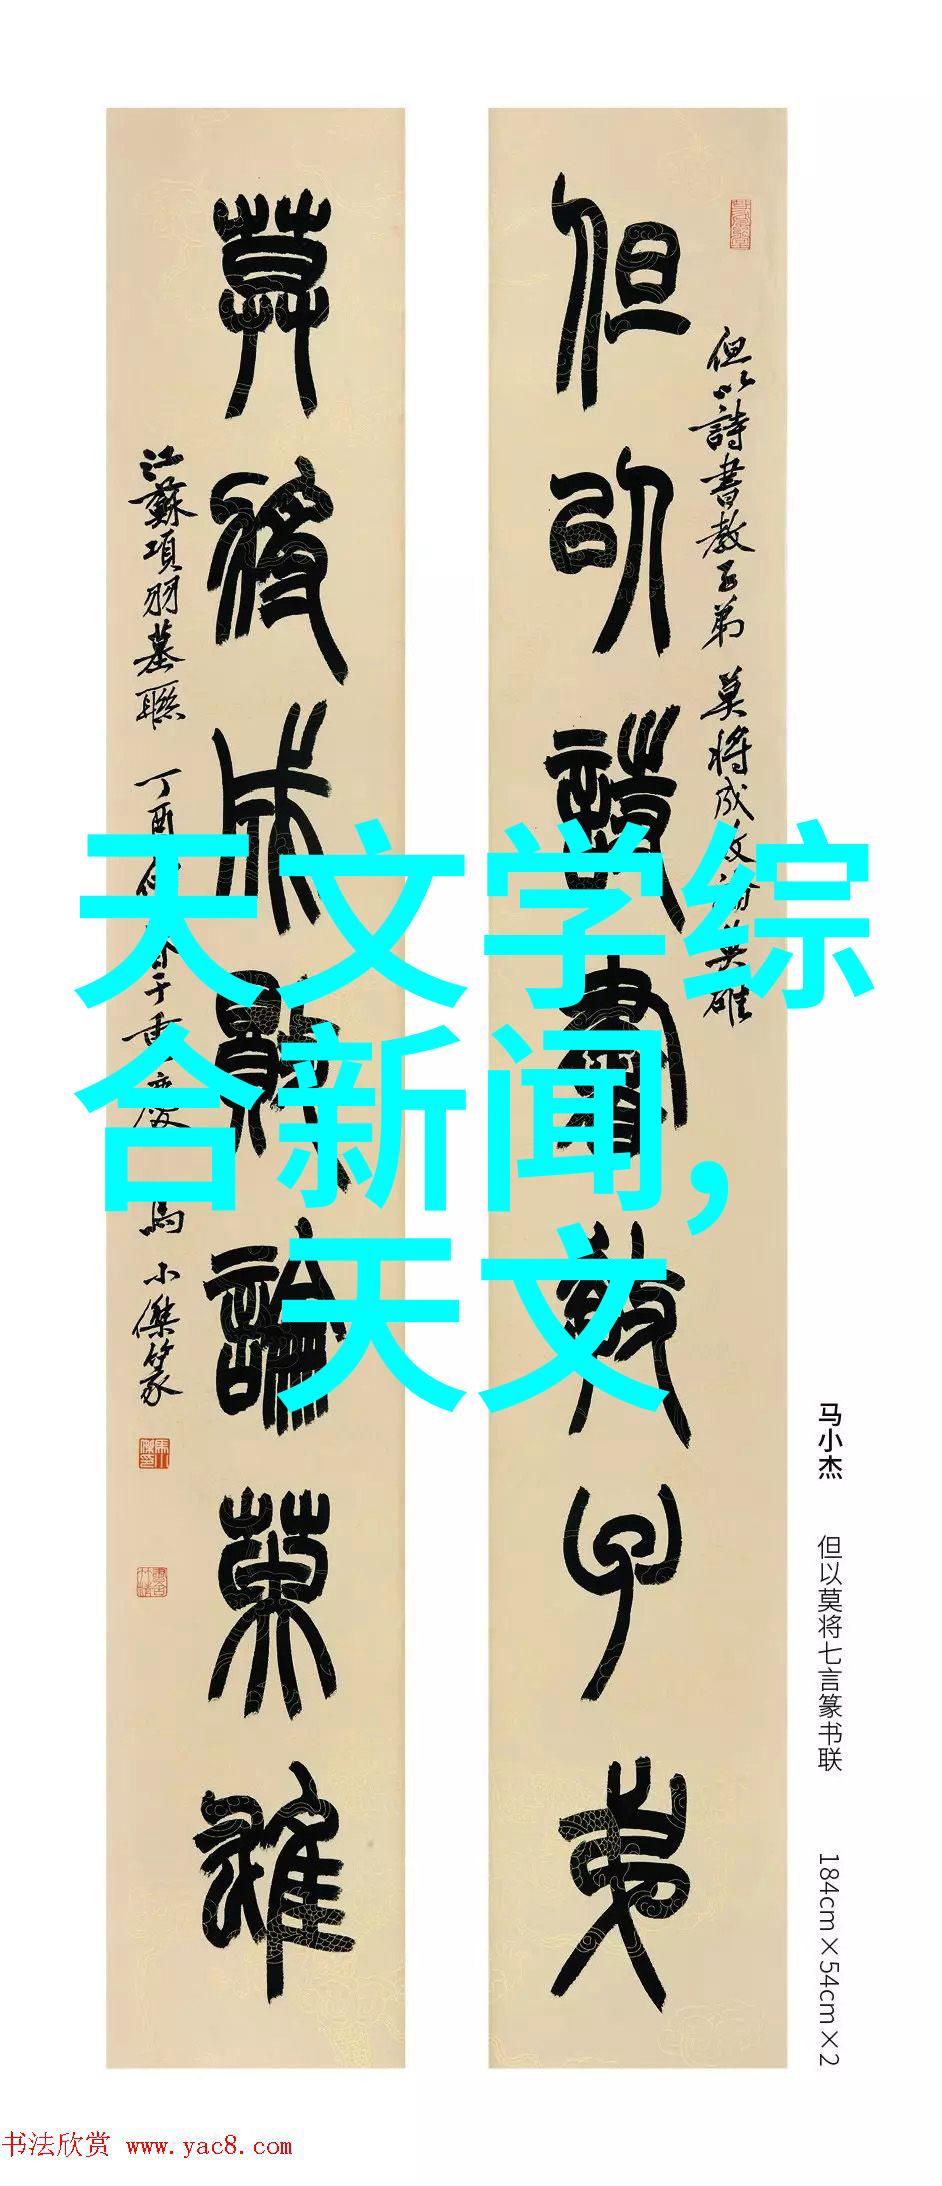 但以詩書教子弟
但以詩書教子弟 莫將成敗論英雄
莫將成敗論英雄
江蘇項羽墓聯 丁酉
于重慶 馬小傑篆
天文学综
合新闻,
天文
马小杰 但以莫将七言篆书联 184cm×54cm×2
书法欣赏 www.yac8.com